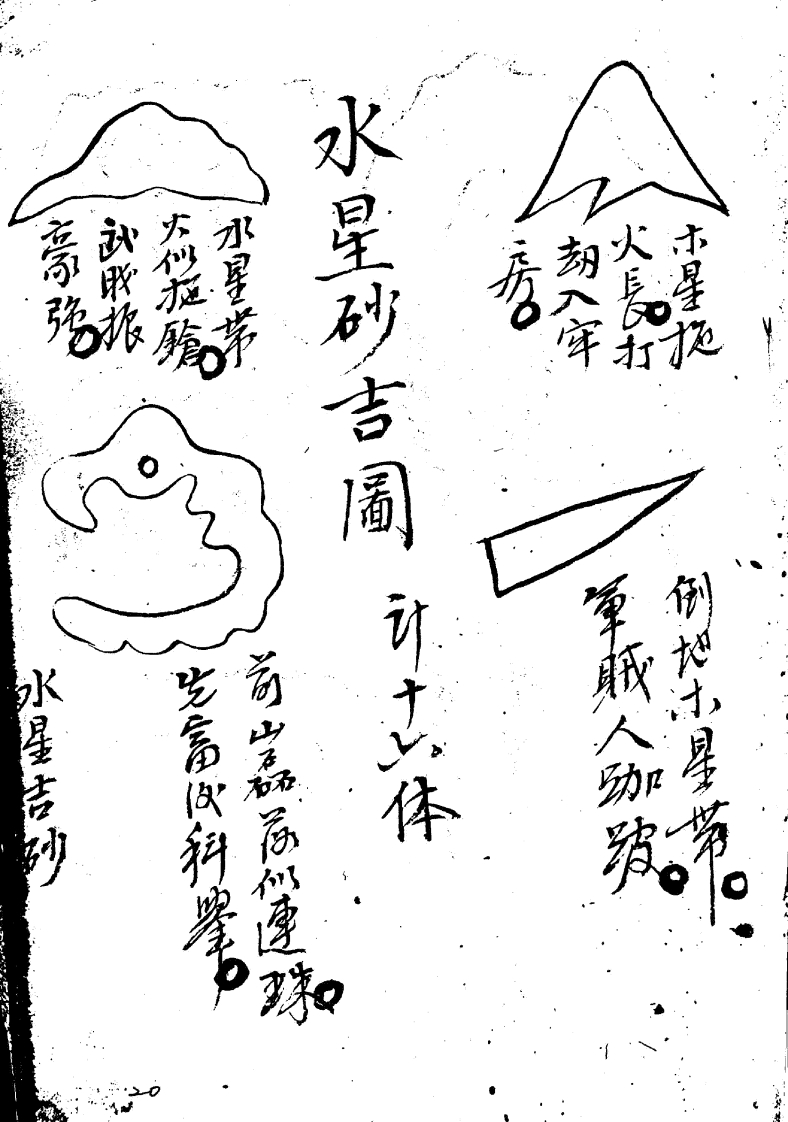 木星拖
火長打
劫入牢
房
倒地木星帶
軍賊人跏跛
水星砂吉圖
計十六体
水星帶
火似拖鎗
武賊振
豪強
前山磊落似連珠
先富後科舉
水星吉砂
20